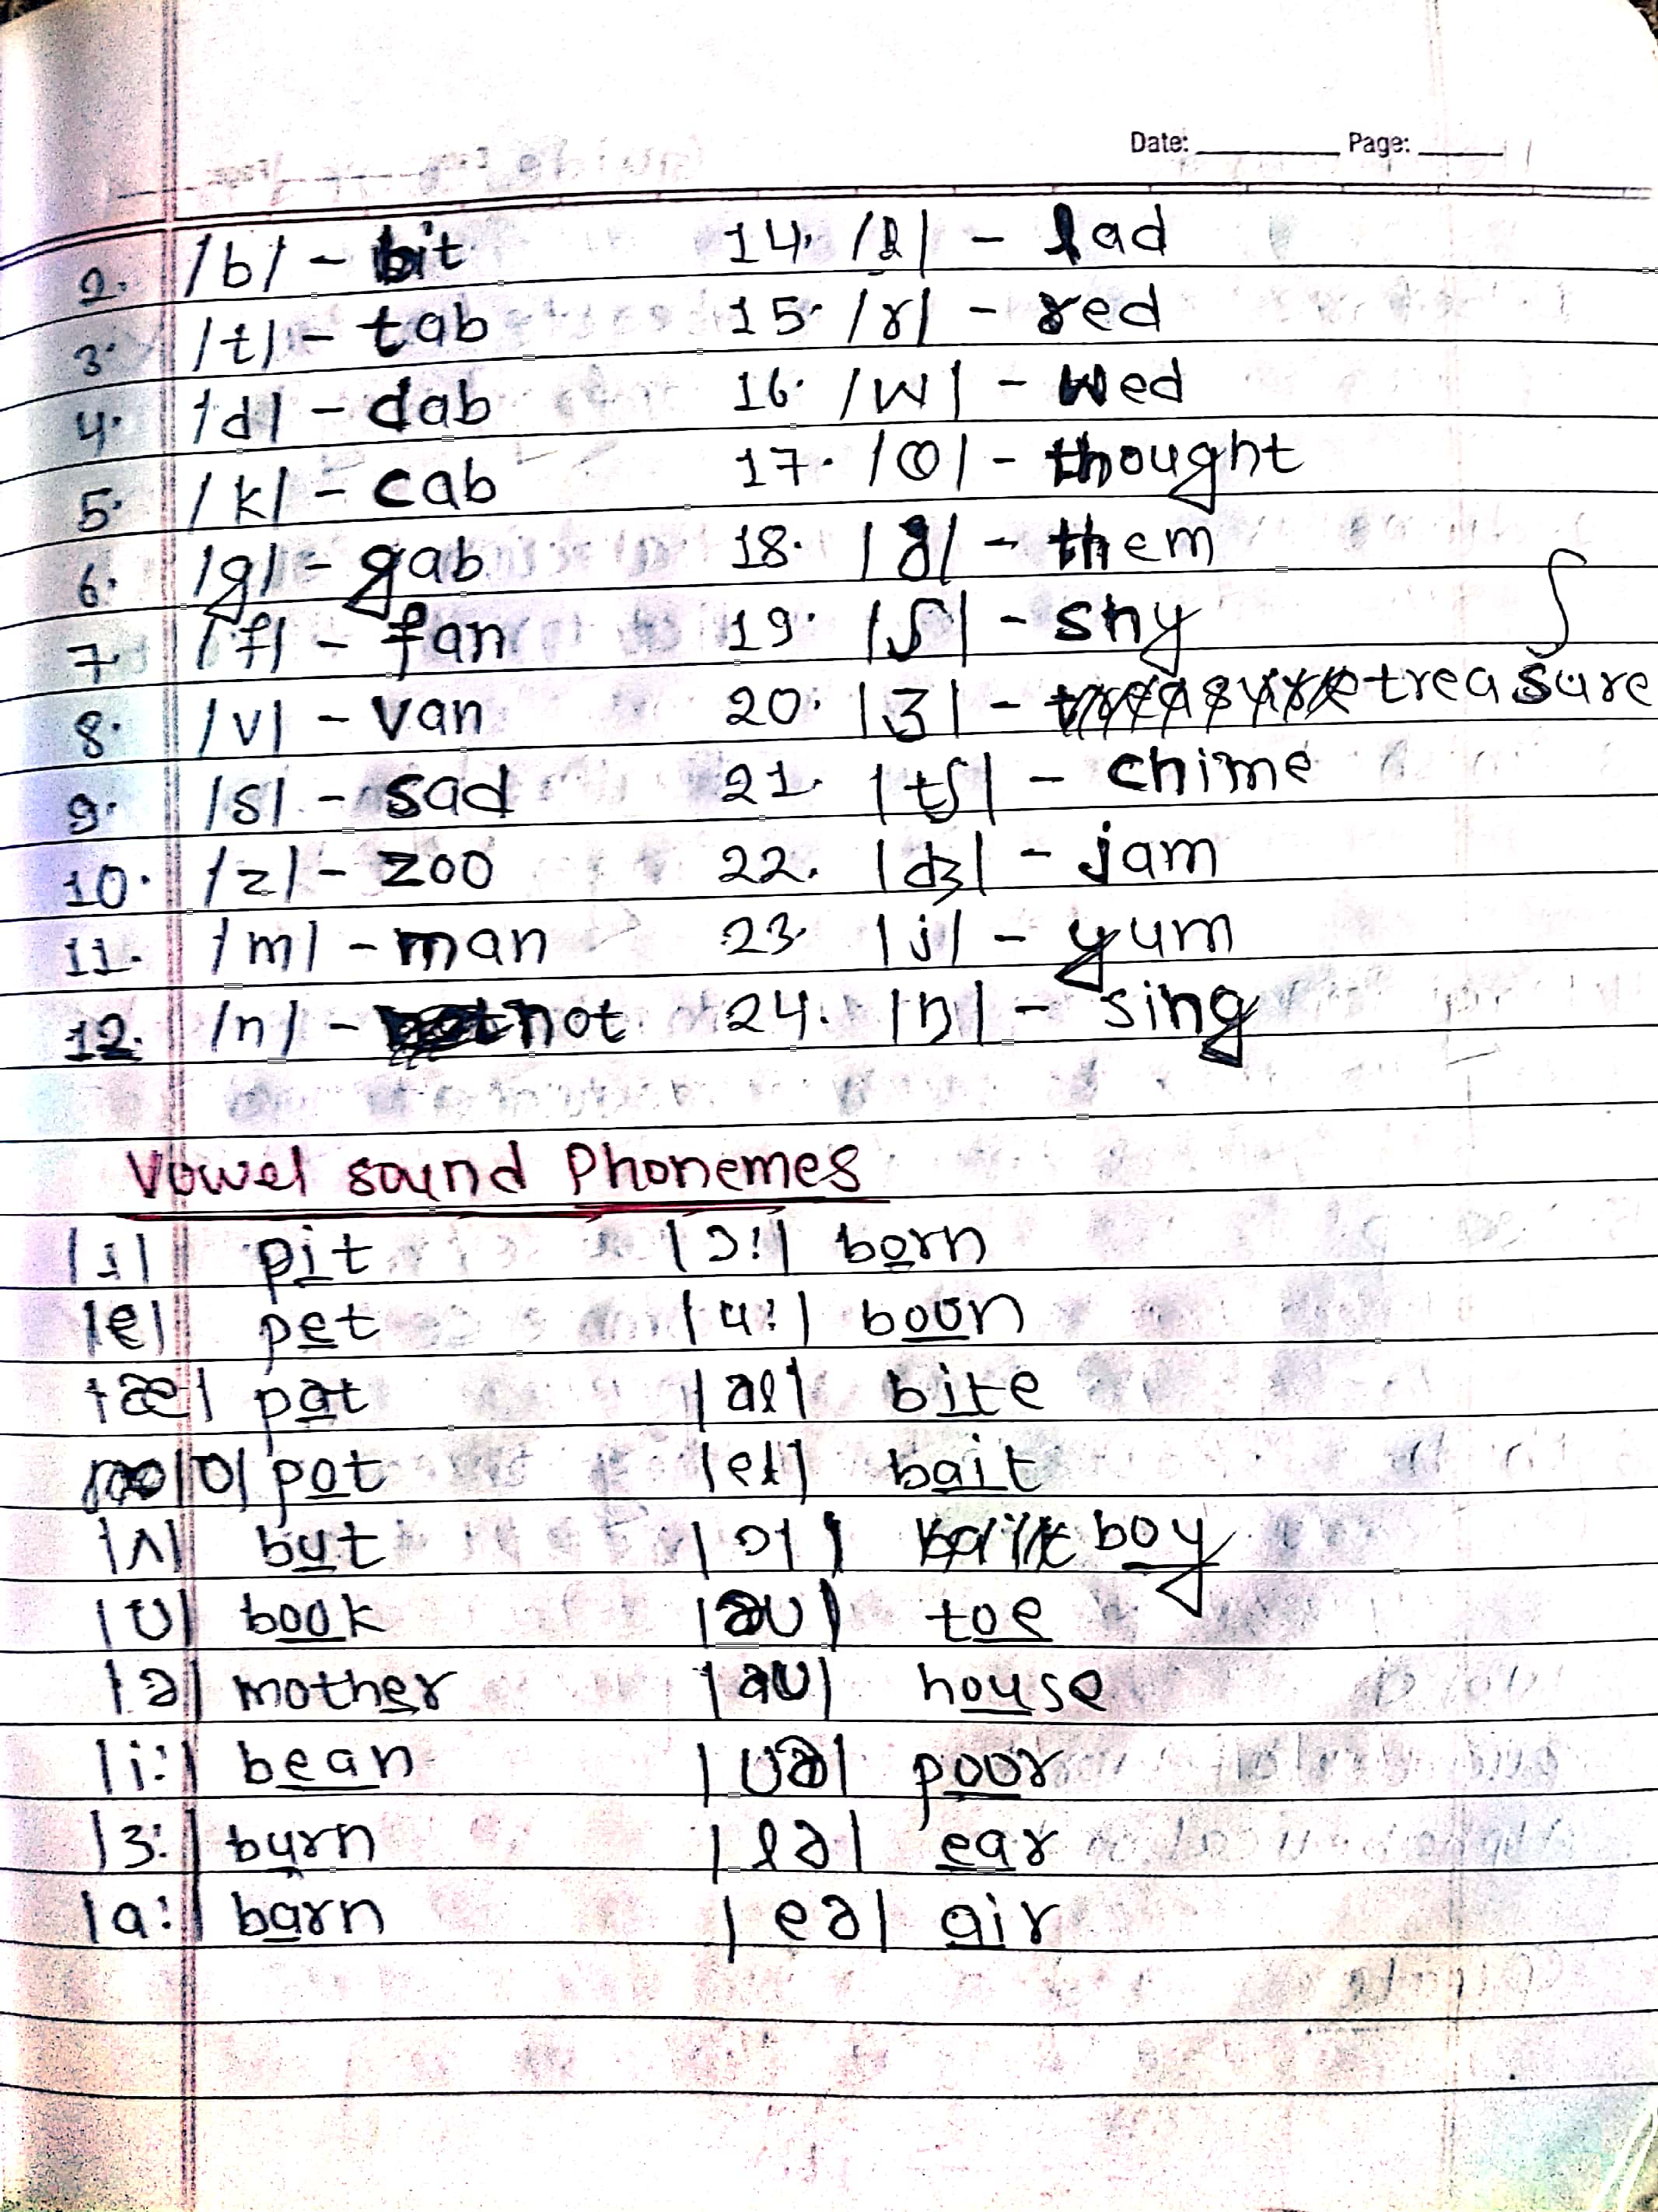 Date: Page:
2. /b/ - bit
3. /t/ - tab
4. /d/ - dab
5. /k/ - cab
6. /g/ - gab
7 /f/ - fan
8. /v/ - van
9. /s/ - sad
10. /z/ - zoo
11. /m/ - man
12. /n/ - not
14. /l/ - lad
15. /r/ - red
16. /w/ - wed
17. /θ/ - thought
18. /ð/ - them
19. /ʃ/ - shy
ʃ
20. /ʒ/ - treasure
21. /tʃ/ - chime
22. /dʒ/ - jam
23 /j/ - yum
24. /ŋ/ - sing
Vowel sound Phonemes
/ɪ/ pit
/e/ pet
/æ/ pat
/ʊ/ pot
/ʌ/ but
/ʊ/ book
/ə/ mother
/i:/ bean
/3:/ burn
/a:/ barn
/ɔ:/ born
/u:/ boon
/aɪ/ bite
/eɪ/ bait
/ɔɪ/ boy
/əʊ/ toe
/aʊ/ house
/ʊə/ poor
/ɪə/ ear
/eə/ air